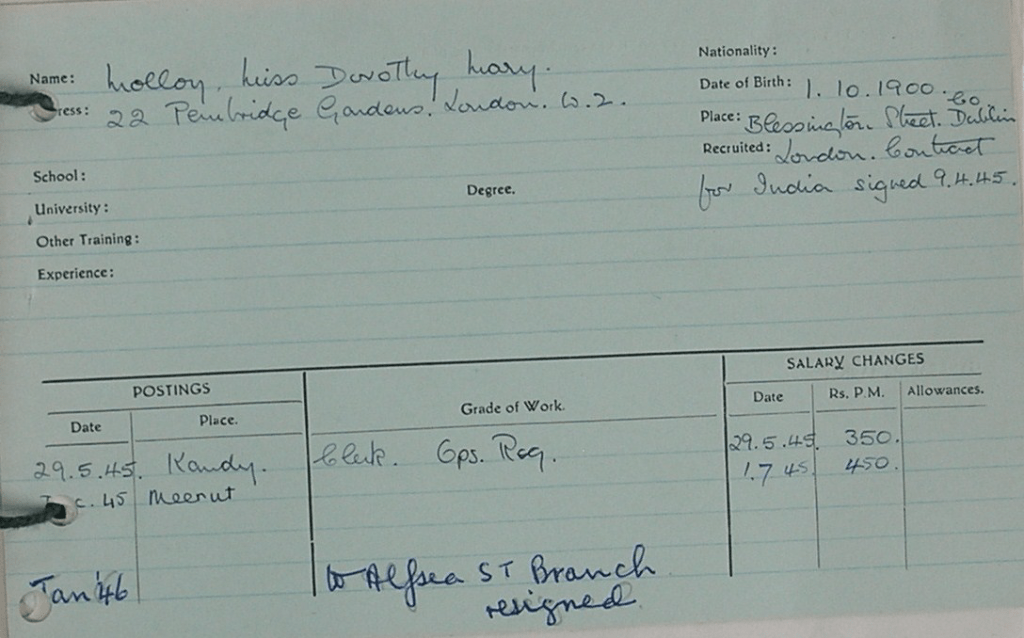 Name: Molloy, Miss Dorothy Mary.
ress: 22 Pembridge Gardens. London. W.2.
Nationality:
Date of Birth: 1.10.1900.
Place: Blessington Street. Co. Dublin
Recruited: London. Contract
for India signed 9.4.45.
School:
Degree.
University:
Other Training:
Experience:
POSTINGS
SALARY CHANGES
Date Place. Grade of Work. Date Rs. P.M. Allowances.
29.5.45. Kandy. Clerk. Ops. Reg. 29.5.45. 350.
1.7.45. 450.
c.45 Meerut
Jan '46 to Alfsea ST Branch
resigned.